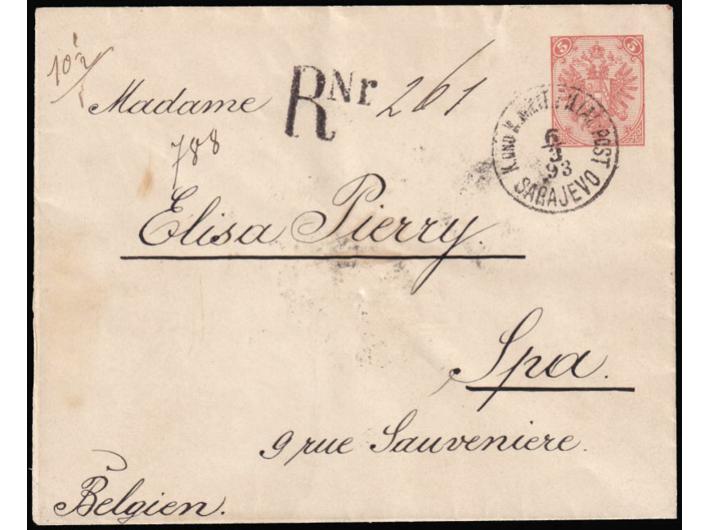 5 5
10/2
Madame
R Nr 261
788
K. UND K. MILIT. FILIAL POST
6/3
93
SARAJEVO
Elisa Pierry.
Spa.
9 rue Sauveniere.
Belgien.